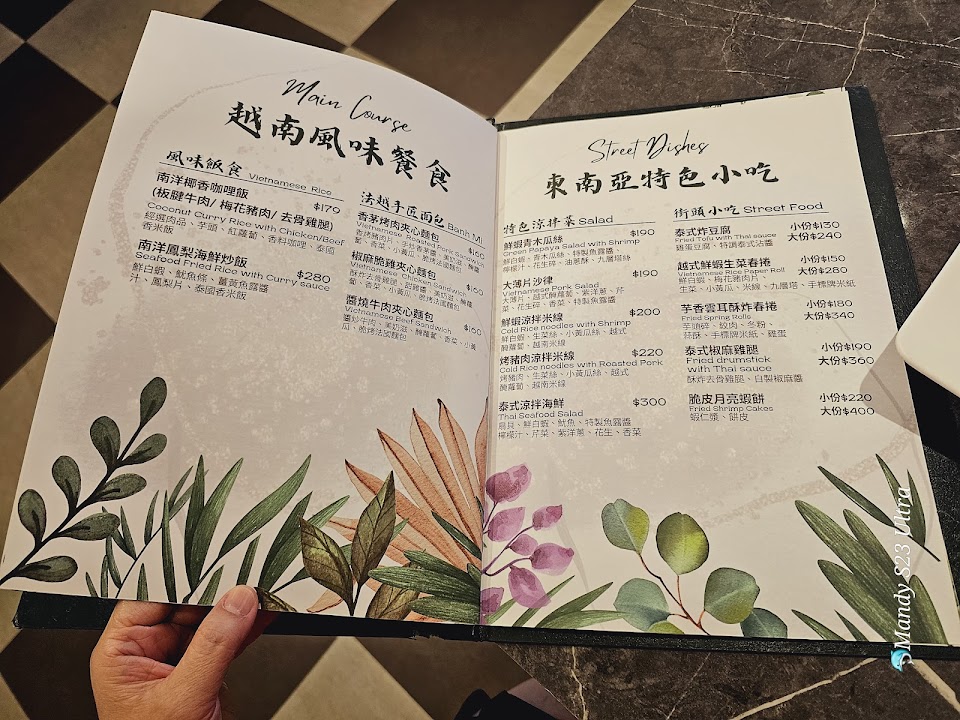 Main Course
越南風味餐食
風味飯食 Vietnamese Rice
南洋椰香咖哩飯 $170
(板腱牛肉/ 梅花豬肉/ 去骨雞腿)
Coconut Curry Rice with Chicken/Beef
經選肉品、芋頭、紅蘿蔔、香料咖哩、泰國
香米飯
南洋鳳梨海鮮炒飯 $280
Seafood Fried Rice with Curry sauce
鮮白蝦、魷魚條、薑黃魚露醬
汁、鳳梨片、泰國香米飯
法越手匠麵包 Banh Mi
香茅烤肉夾心麵包 $160
Vietnamese Roasted Pork Sandwich
椒麻脆雞夾心麵包 $160
Vietnamese Chicken Sandwich
酥炸去骨雞腿、甜雞醬、美奶滋、醃蘿
蔔、香菜、小黃瓜、脆烤法國麵包
醬燒牛肉夾心麵包 $160
Vietnamese Beef Sandwich
醬炒牛肉、美奶滋、醃蘿蔔、香菜、小黃
瓜、脆烤法國麵包
Street Dishes
東南亞特色小吃
特色涼拌菜 Salad
鮮蝦青木瓜絲 $190
Green Papaya Salad with Shrimp
鮮白蝦、青木瓜絲、特製魚露醬、
檸檬汁、花生碎、油蔥酥、九層塔絲
大薄片沙律 $190
Vietnamese Pork Salad
大薄片、越式醃蘿蔔、紫洋蔥、芹
菜、花生碎、香菜、特製魚露醬
鮮蝦涼拌米線 $200
Cold Rice noodles with Shrimp
鮮白蝦、生菜絲、小黃瓜絲、越式
醃蘿蔔、越南米線
烤豬肉涼拌米線 $220
Cold Rice noodles with Roasted Pork
烤豬肉、生菜絲、小黃瓜絲、越式
醃蘿蔔、越南米線
泰式涼拌海鮮 $300
Thai Seafood Salad
扇貝、鮮白蝦、魷魚、特製魚露醬
檸檬汁、芹菜、紫洋蔥、花生、香菜
街頭小吃 Street Food
泰式炸豆腐 小份$130
Fried Tofu with Thai sauce 大份$240
雞蛋豆腐、特調泰式沾醬
越式鮮蝦生菜春捲 小份$150
Vietnamese Rice Paper Roll 大份$280
鮮白蝦、梅花豬肉片、
生菜、小黃瓜、米線、九層塔、手標牌米紙
芋香雲耳酥炸春捲 小份$180
Fried Spring Rolls 大份$340
芋頭碎、絞肉、冬粉、
蒜酥、手標牌米紙、雞蛋
泰式椒麻雞腿 小份$190
Fried drumstick 大份$360
with Thai sauce
酥炸去骨雞腿、自製椒麻醬
脆皮月亮蝦餅 小份$220
Fried Shrimp Cakes 大份$400
蝦仁漿、餅皮
Mandy S23 Ultra